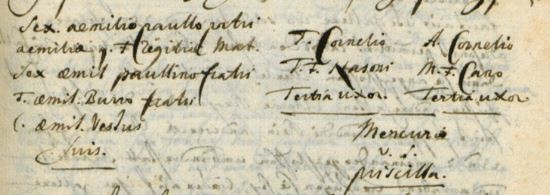 Sex. aemilio paullo patri
aemiliæ q. F Cregitiæ Mat.
Sex æmil paullino fratri
T. æmil. Burro fratri
C. æmil. Vestus
suis.
T. Cornelio
T. F. Nasoni
Tertia uxor
A. Cornelio
M. F. Capo
Tertia uxor
Mercurio
v. s.
Priscilla.